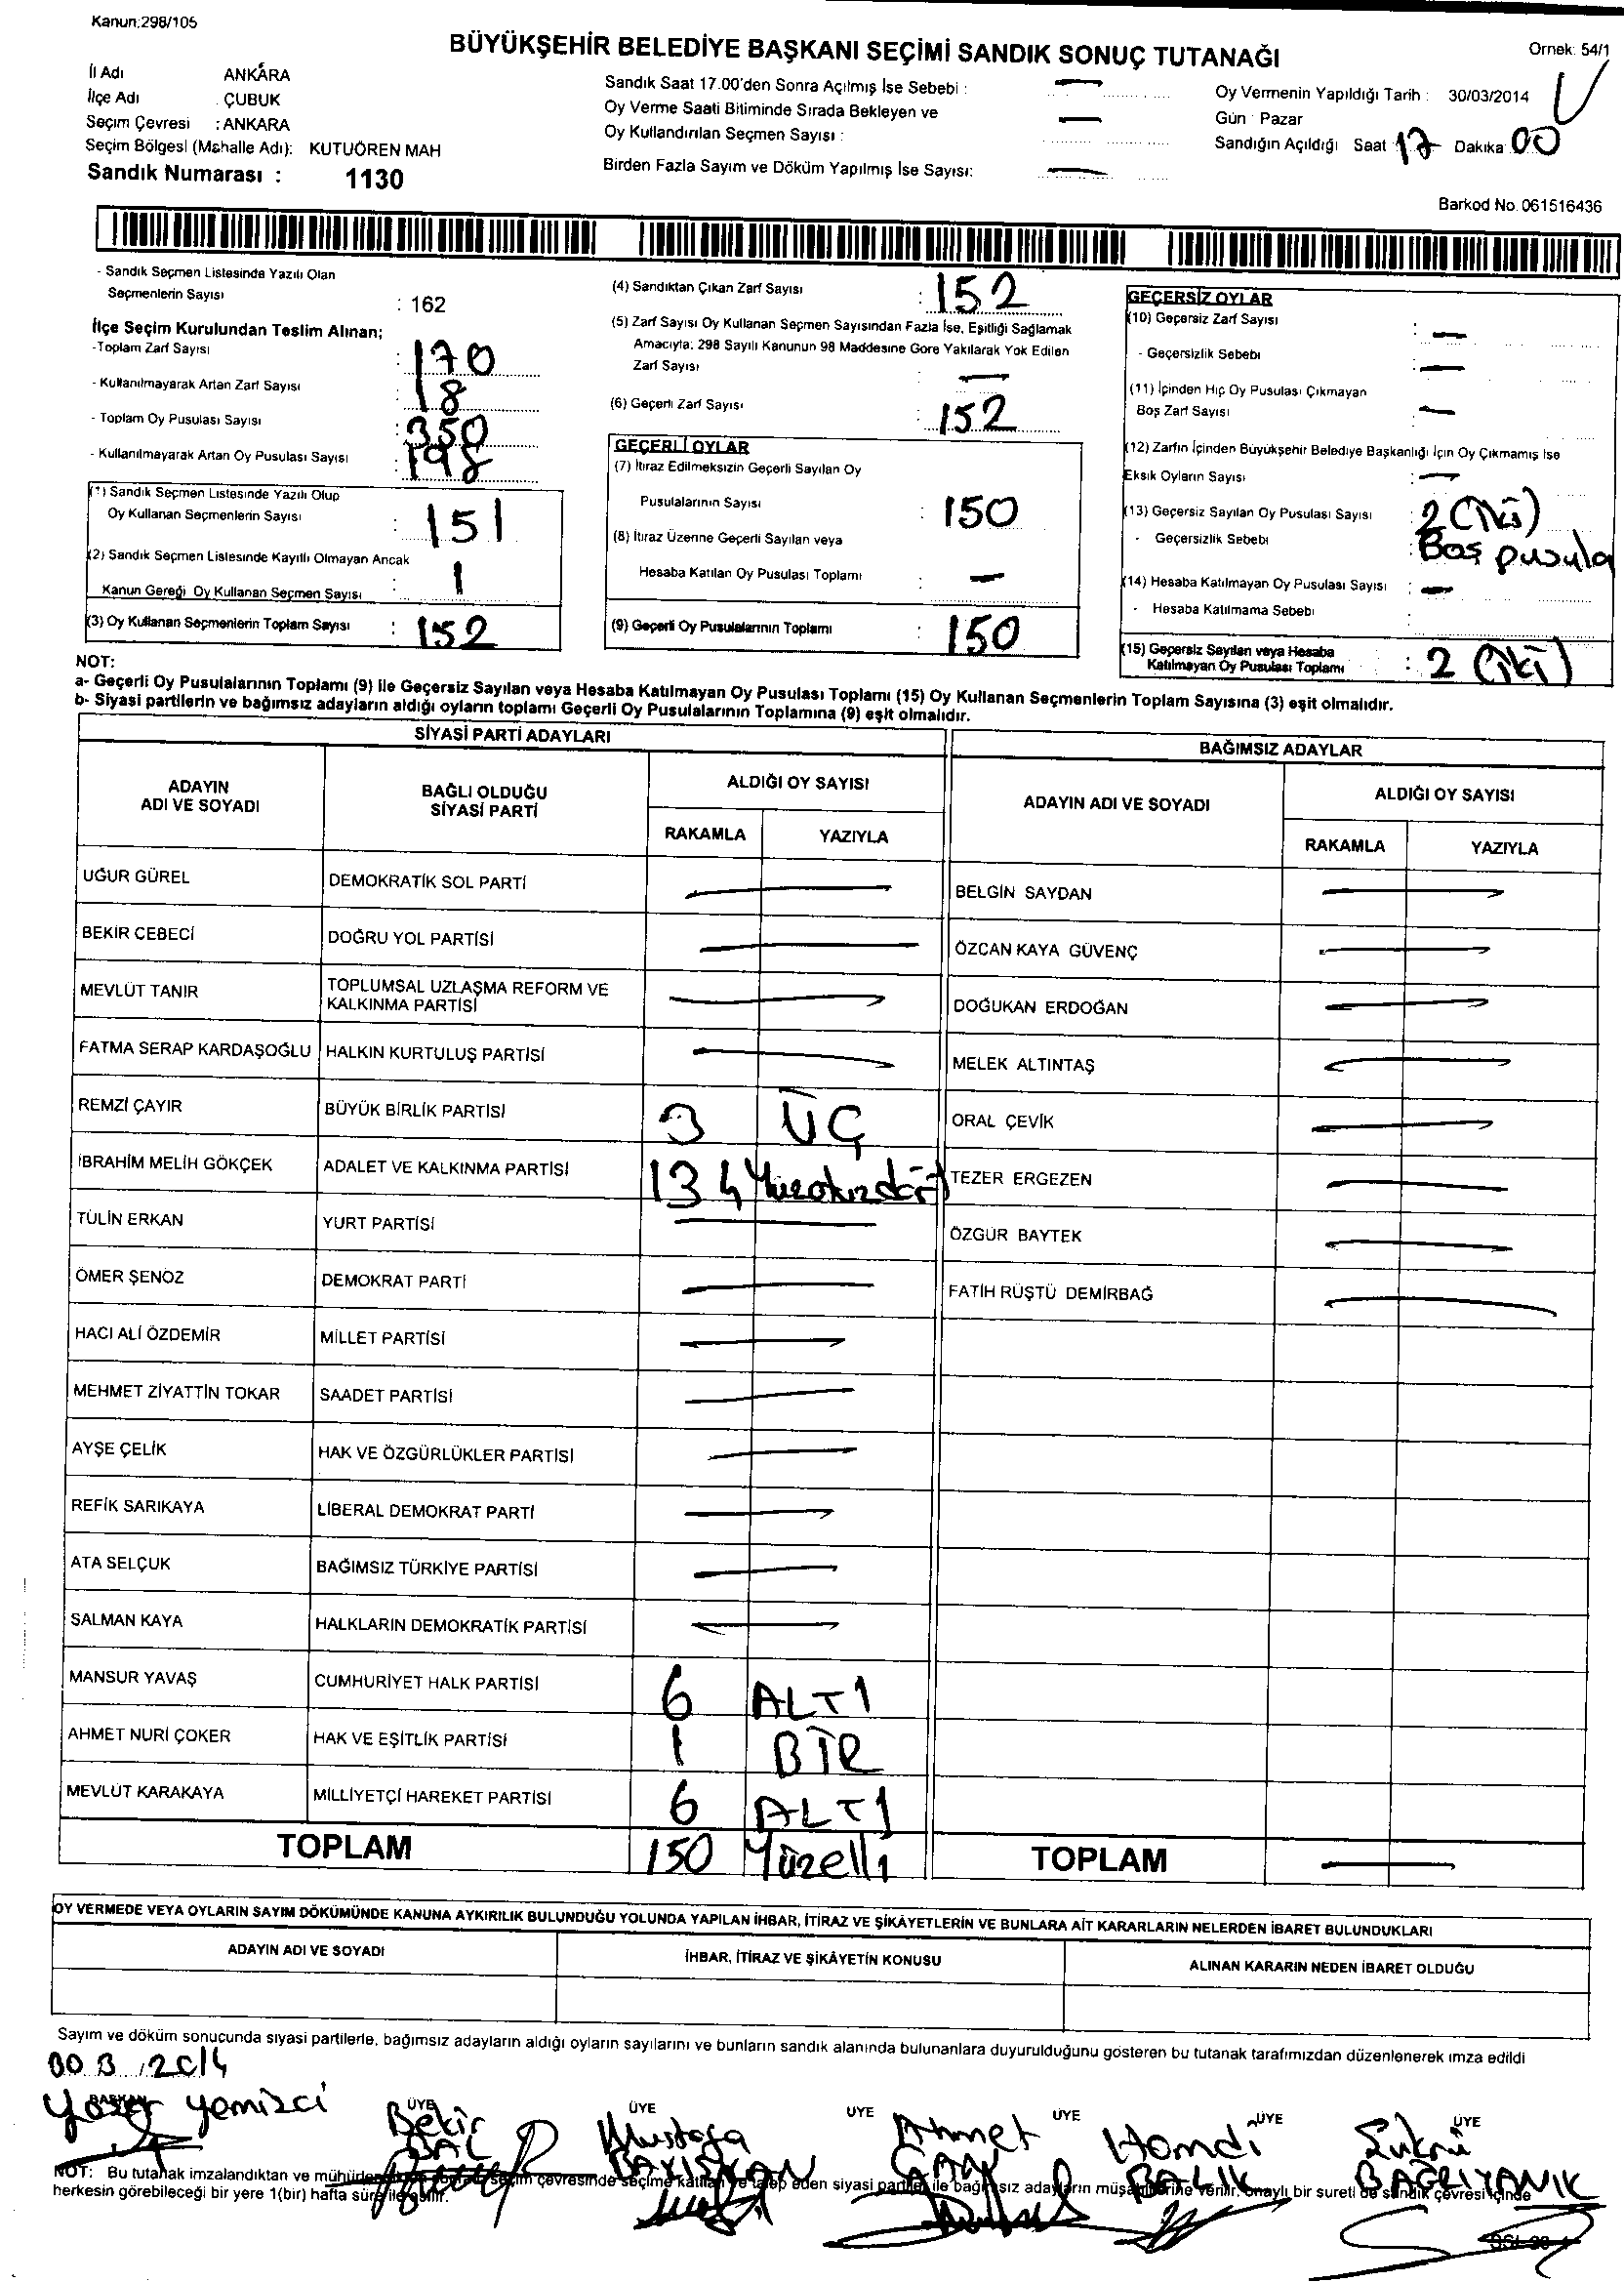 Kanun:298/105
BÜYÜKŞEHİR BELEDİYE BAŞKANI SEÇİMİ SANDIK SONUÇ TUTANAĞI
Ornek: 54/1
İl Adı ANKARA
İlçe Adı ÇUBUK
Seçim Çevresi : ANKARA
Seçim Bölgesi (Mahalle Adı): KUTUÖREN MAH
Sandık Numarası : 1130
Sandık Saat 17.00'den Sonra Açılmış İse Sebebi : —
Oy Verme Saati Bitiminde Sırada Bekleyen ve
Oy Kullandırılan Seçmen Sayısı : —
Birden Fazla Sayım ve Döküm Yapılmış İse Sayısı: —
Oy Vermenin Yapıldığı Tarih : 30/03/2014
Gün : Pazar
Sandığın Açıldığı Saat 17 Dakika 00
Barkod No. 061516436
- Sandık Seçmen Listesinde Yazılı Olan
Seçmenlerin Sayısı : 162
İlçe Seçim Kurulundan Teslim Alınan;
-Toplam Zarf Sayısı : 170
- Kullanılmayarak Artan Zarf Sayısı : 18
- Toplam Oy Pusulası Sayısı : 350
- Kullanılmayarak Artan Oy Pusulası Sayısı : 198
(1) Sandık Seçmen Listesinde Yazılı Olup
Oy Kullanan Seçmenlerin Sayısı : 151
(2) Sandık Seçmen Listesinde Kayıtlı Olmayan Ancak
Kanun Gereği Oy Kullanan Seçmen Sayısı : 1
(3) Oy Kullanan Seçmenlerin Toplam Sayısı : 152
(4) Sandıktan Çıkan Zarf Sayısı : 152
(5) Zarf Sayısı Oy Kullanan Seçmen Sayısından Fazla İse, Eşitliği Sağlamak
Amacıyla; 298 Sayılı Kanunun 98 Maddesine Göre Yakılarak Yok Edilen
Zarf Sayısı : —
(6) Geçerli Zarf Sayısı : 152
GEÇERLİ OYLAR
(7) İtiraz Edilmeksizin Geçerli Sayılan Oy
Pusulalarının Sayısı : 150
(8) İtiraz Üzerine Geçerli Sayılan veya
Hesaba Katılan Oy Pusulası Toplamı : —
(9) Geçerli Oy Pusulalarının Toplamı : 150
GEÇERSİZ OYLAR
(10) Geçersiz Zarf Sayısı : —
- Geçersizlik Sebebi : —
(11) İçinden Hiç Oy Pusulası Çıkmayan
Boş Zarf Sayısı : —
(12) Zarfın İçinden Büyükşehir Belediye Başkanlığı İçin Oy Çıkmamış İse
Eksik Oyların Sayısı : —
(13) Geçersiz Sayılan Oy Pusulası Sayısı : 2 (iki)
- Geçersizlik Sebebi : Boş pusula
(14) Hesaba Katılmayan Oy Pusulası Sayısı : —
- Hesaba Katılmama Sebebi :
(15) Geçersiz Sayılan veya Hesaba
Katılmayan Oy Pusulası Toplamı : 2 (iki)
NOT:
a- Geçerli Oy Pusulalarının Toplamı (9) ile Geçersiz Sayılan veya Hesaba Katılmayan Oy Pusulası Toplamı (15) Oy Kullanan Seçmenlerin Toplam Sayısına (3) eşit olmalıdır.
b- Siyasi partilerin ve bağımsız adayların aldığı oyların toplamı Geçerli Oy Pusulalarının Toplamına (9) eşit olmalıdır.
SİYASİ PARTİ ADAYLARI
ADAYIN ADI VE SOYADI BAĞLI OLDUĞU SİYASİ PARTİ ALDIĞI OY SAYISI
RAKAMLA YAZIYLA
UĞUR GÜREL DEMOKRATİK SOL PARTİ —
BEKİR CEBECİ DOĞRU YOL PARTİSİ —
MEVLÜT TANIR TOPLUMSAL UZLAŞMA REFORM VE KALKINMA PARTİSİ —
FATMA SERAP KARDAŞOĞLU HALKIN KURTULUŞ PARTİSİ —
REMZİ ÇAYIR BÜYÜK BİRLİK PARTİSİ 3 ÜÇ
İBRAHİM MELİH GÖKÇEK ADALET VE KALKINMA PARTİSİ 134 Yüzotuzdört
TÜLİN ERKAN YURT PARTİSİ —
ÖMER ŞENÖZ DEMOKRAT PARTİ —
HACI ALİ ÖZDEMİR MİLLET PARTİSİ —
MEHMET ZİYATTİN TOKAR SAADET PARTİSİ —
AYŞE ÇELİK HAK VE ÖZGÜRLÜKLER PARTİSİ —
REFİK SARIKAYA LİBERAL DEMOKRAT PARTİ —
ATA SELÇUK BAĞIMSIZ TÜRKİYE PARTİSİ —
SALMAN KAYA HALKLARIN DEMOKRATİK PARTİSİ —
MANSUR YAVAŞ CUMHURİYET HALK PARTİSİ 6 ALTI
AHMET NURİ ÇOKER HAK VE EŞİTLİK PARTİSİ 1 BİR
MEVLÜT KARAKAYA MİLLİYETÇİ HAREKET PARTİSİ 6 ALTI
TOPLAM 150 Yüzelli
BAĞIMSIZ ADAYLAR
ADAYIN ADI VE SOYADI ALDIĞI OY SAYISI
RAKAMLA YAZIYLA
BELGİN SAYDAN —
ÖZCAN KAYA GÜVENÇ —
DOĞUKAN ERDOĞAN —
MELEK ALTINTAŞ —
ORAL ÇEVİK —
TEZER ERGEZEN —
ÖZGÜR BAYTEK —
FATİH RÜŞTÜ DEMİRBAĞ —
TOPLAM —
OY VERMEDE VEYA OYLARIN SAYIM DÖKÜMÜNDE KANUNA AYKIRILIK BULUNDUĞU YOLUNDA YAPILAN İHBAR, İTİRAZ VE ŞİKÂYETLERİN VE BUNLARA AİT KARARLARIN NELERDEN İBARET BULUNDUKLARI
ADAYIN ADI VE SOYADI İHBAR, İTİRAZ VE ŞİKÂYETİN KONUSU ALINAN KARARIN NEDEN İBARET OLDUĞU
Sayım ve döküm sonucunda siyasi partilerle, bağımsız adayların aldığı oyların sayılarını ve bunların sandık alanında bulunanlara duyurulduğunu gösteren bu tutanak tarafımızdan düzenlenerek imza edildi
30.3.2014
BAŞKAN ÜYE ÜYE ÜYE ÜYE ÜYE ÜYE
Yaşar Yemizci Bekir BAL Mustafa Ahmet CAN Hamdi BALIK Şükrü BAĞRIYANIK
NOT: Bu tutanak imzalandıktan ve seçim çevresinde seçime katılan ve talep eden siyasi partiler ile bağımsız adayların müşahitlerine verilir. onaylı bir sureti de sandık çevresi içinde
herkesin görebileceği bir yere 1(bir) hafta süre ile asılır.